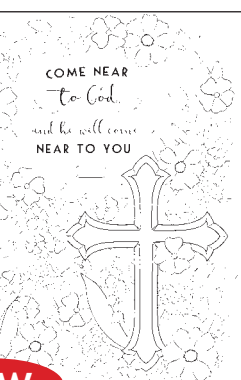 COME NEAR
to God
and he will come
NEAR TO YOU
W